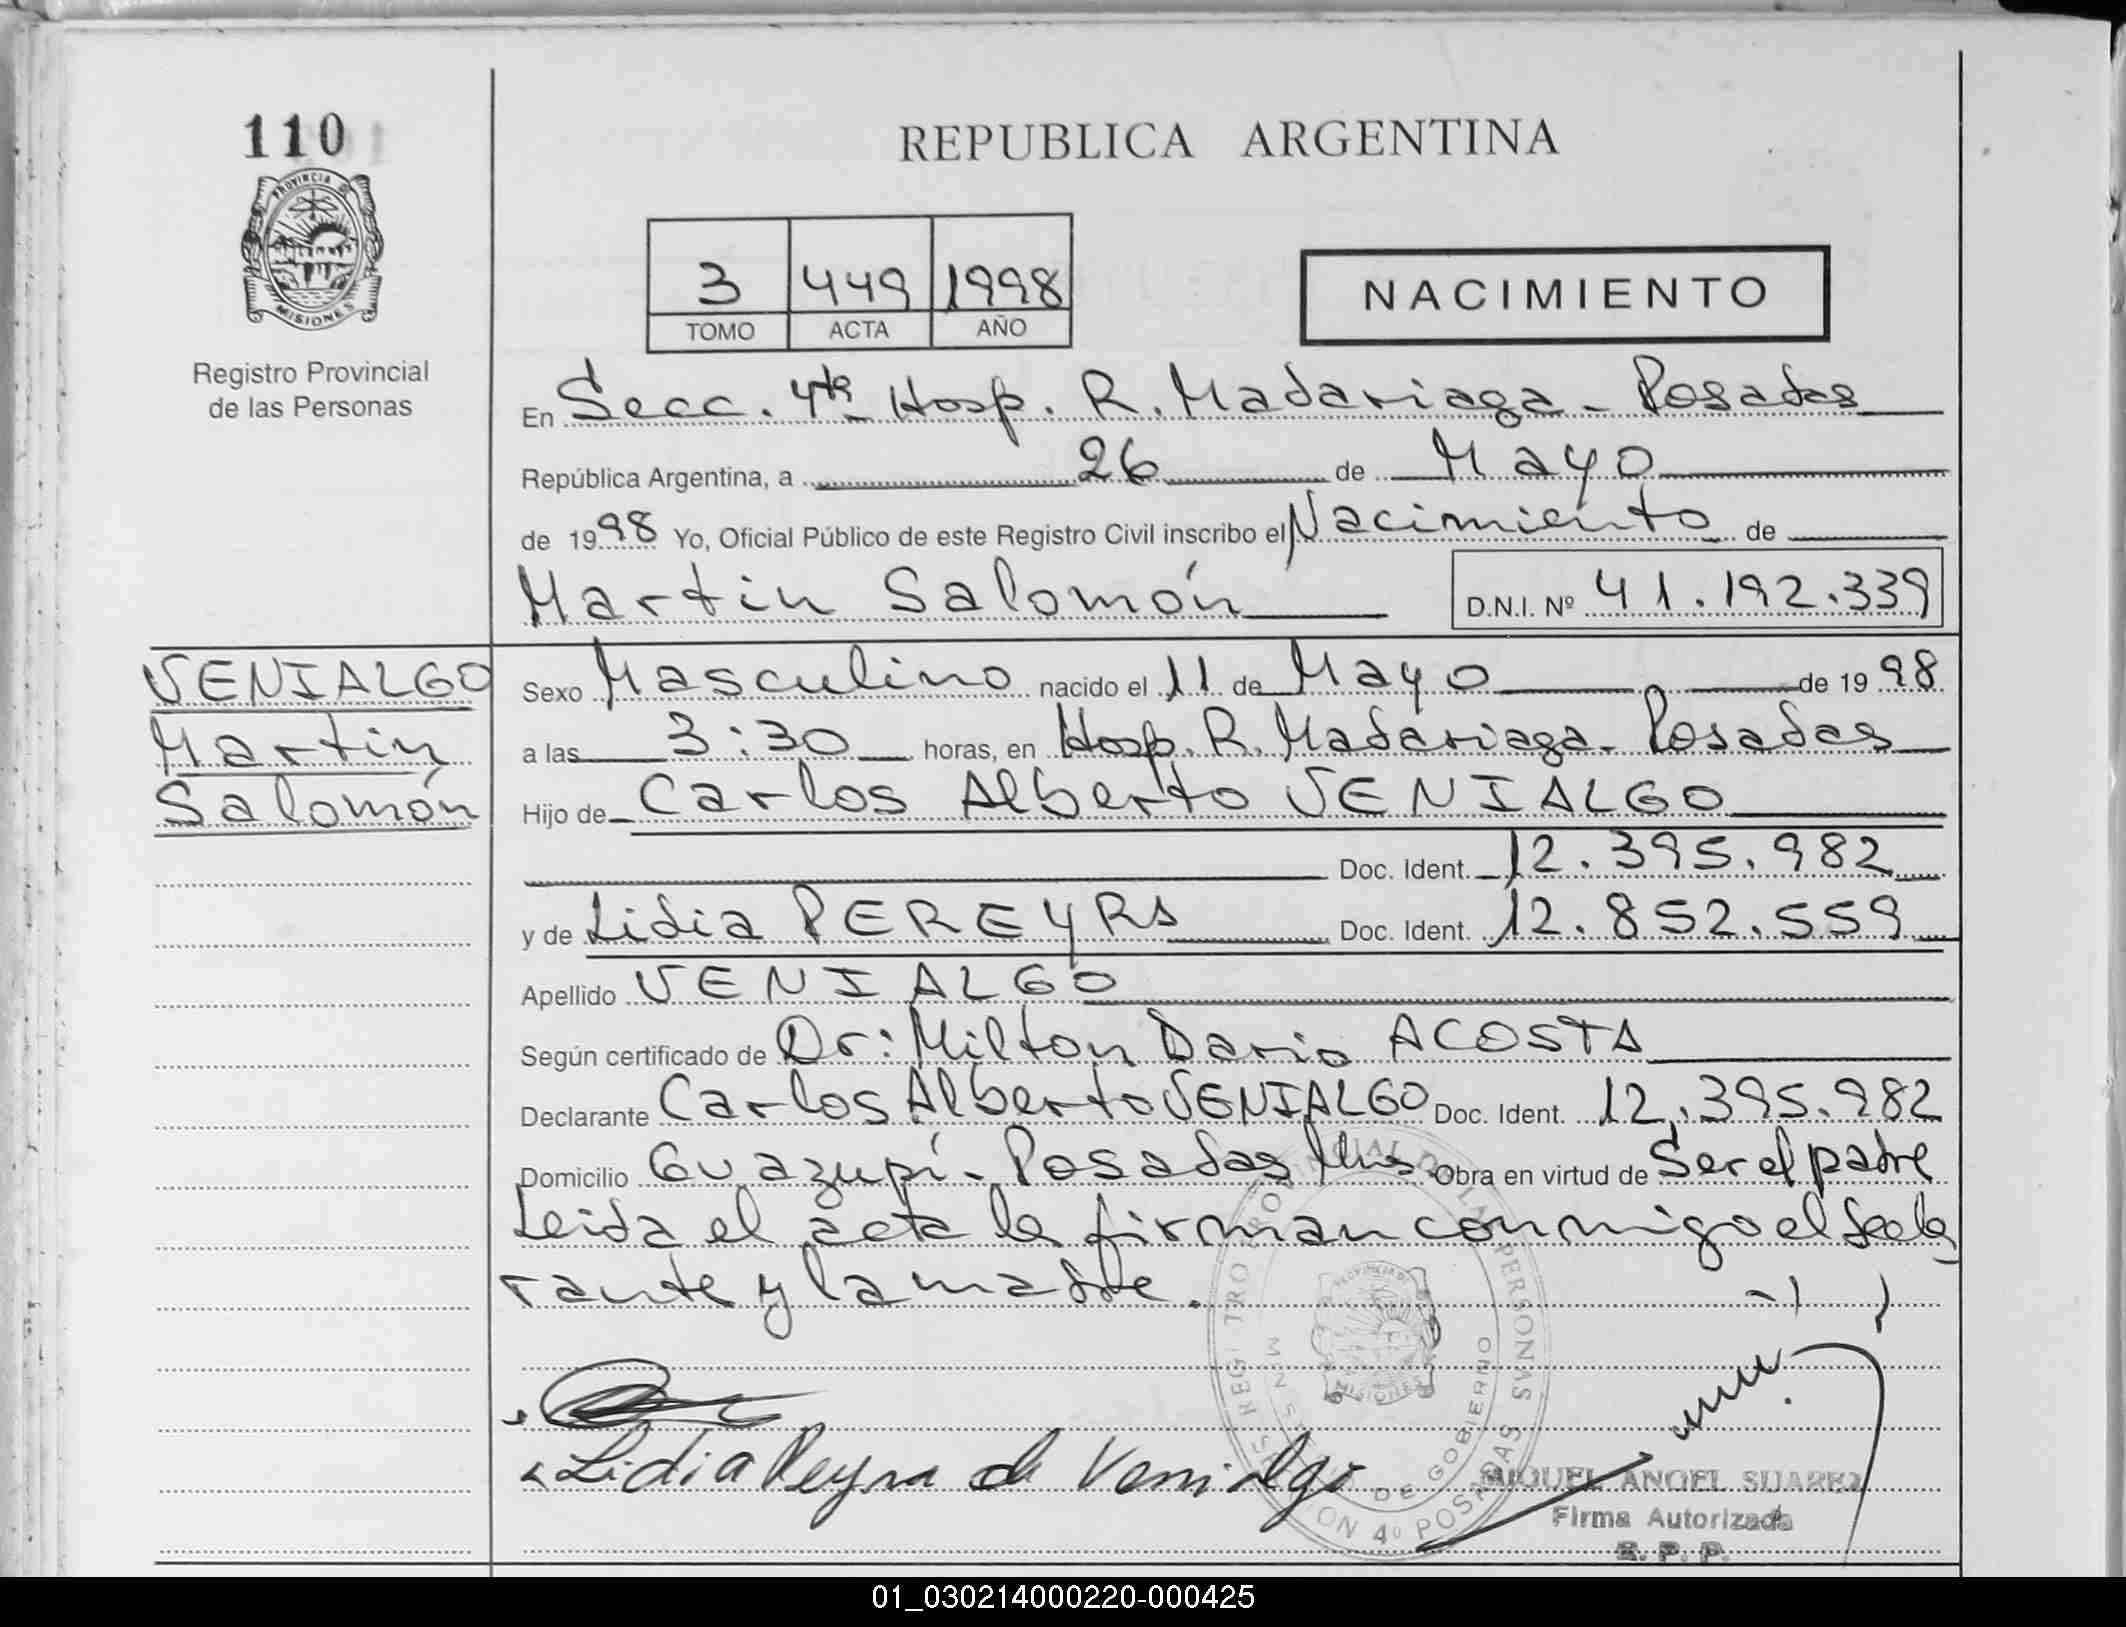 110
PROVINCIA DE
MISIONES
Registro Provincial
de las Personas
REPUBLICA ARGENTINA
3 449 1998
TOMO ACTA AÑO
NACIMIENTO
En Secc. 4ta Hosp. R. Madariaga - Posadas
República Argentina, a 26 de Mayo
de 1998 Yo, Oficial Público de este Registro Civil inscribo el Nacimiento de
Martín Salomón D.N.I. Nº 41.192.339
VENIALGO
Martín
Salomón
Sexo Masculino nacido el 11 de Mayo de 1998
a las 3:30 horas, en Hosp. R. Madariaga - Posadas
Hijo de Carlos Alberto VENIALGO
Doc. Ident. 12.395.982
y de Lidia PEREYRA Doc. Ident. 12.852.559
Apellido VENIALGO
Según certificado de Dr: Milton Dario ACOSTA
Declarante Carlos Alberto VENIALGO Doc. Ident. 12.395.982
Domicilio Guazupí - Posadas Mis Obra en virtud de Ser el padre
Leida el acta la firman conmigo el decla
rante y la madre.
Lidia Pereyra de Venialgo
MIGUEL ANGEL SUAREZ
Firma Autorizada
R. P. P.
REGISTRO PROVINCIAL DE LAS PERSONAS
MINISTERIO DE GOBIERNO
PROVINCIA DE
MISIONES
SECCION 4º POSADAS
01_030214000220-000425